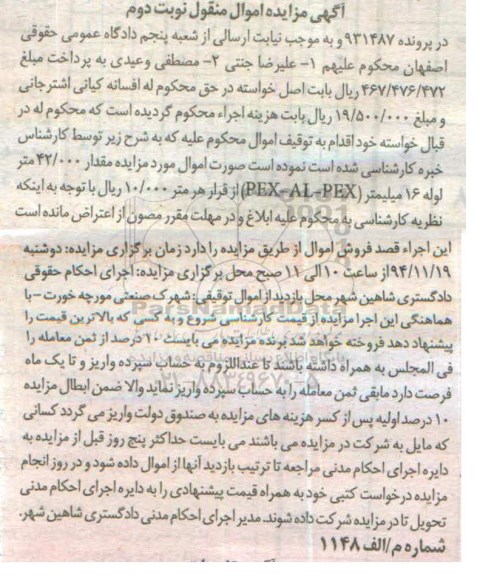 آگهی مزایده اموال منقول نوبت دوم
در پرونده ۹۳۱۴۸۷ و به موجب نیابت ارسالی از شعبه پنجم دادگاه عمومی حقوقی
اصفهان محکوم علیهم ۱- علیرضا جنتی ۲- مصطفی وعیدی به پرداخت مبلغ
۴۶۷/۴۷۶/۴۷۲ ریال بابت اصل خواسته در حق محکوم له افسانه کیانی اشترجانی
و مبلغ ۱۹/۵۰۰/۰۰۰ ریال بابت هزینه اجراء محکوم گردیده است که محکوم له در
قبال خواسته خود اقدام به توقیف اموال محکوم علیه که به شرح زیر توسط کارشناس
خبره کارشناسی شده است نموده است صورت اموال مورد مزایده مقدار ۴۲/۰۰۰ متر
لوله ۱۶ میلیمتر (PEX-AL-PEX) از قرار هر متر ۱۰/۰۰۰ ریال با توجه به اینکه
نظریه کارشناسی به محکوم علیه ابلاغ و در مهلت مقرر مصون از اعتراض مانده است
این اجراء قصد فروش اموال از طریق مزایده را دارد زمان برگزاری مزایده: دوشنبه
۹۴/۱۱/۱۹ از ساعت ۱۰ الی ۱۱ صبح محل برگزاری مزایده: اجرای احکام حقوقی
دادگستری شاهین شهر محل بازدید از اموال توقیفی: شهرک صنعتی مورچه خورت - با
هماهنگی این اجرا مزایده از قیمت کارشناسی شروع و به کسی که بالاترین قیمت را
پیشنهاد دهد فروخته خواهد شد برنده مزایده می بایست ۱۰ درصد از ثمن معامله را
فی المجلس به همراه داشته باشند تا عنداللزوم به حساب سپرده واریز و تا یک ماه
فرصت دارد مابقی ثمن معامله را به حساب سپرده واریز نماید والا ضمن ابطال مزایده
۱۰ درصد اولیه پس از کسر هزینه های مزایده به صندوق دولت واریز می گردد کسانی
که مایل به شرکت در مزایده می باشند می بایست حداکثر پنج روز قبل از مزایده به
دایره اجرای احکام مدنی مراجعه تا ترتیب بازدید آنها از اموال داده شود و در روز انجام
مزایده درخواست کتبی خود به همراه قیمت پیشنهادی را به دایره اجرای احکام مدنی
تحویل تا در مزایده شرکت داده شوند. مدیر اجرای احکام مدنی دادگستری شاهین شهر.
شماره م/الف ۱۱۴۸